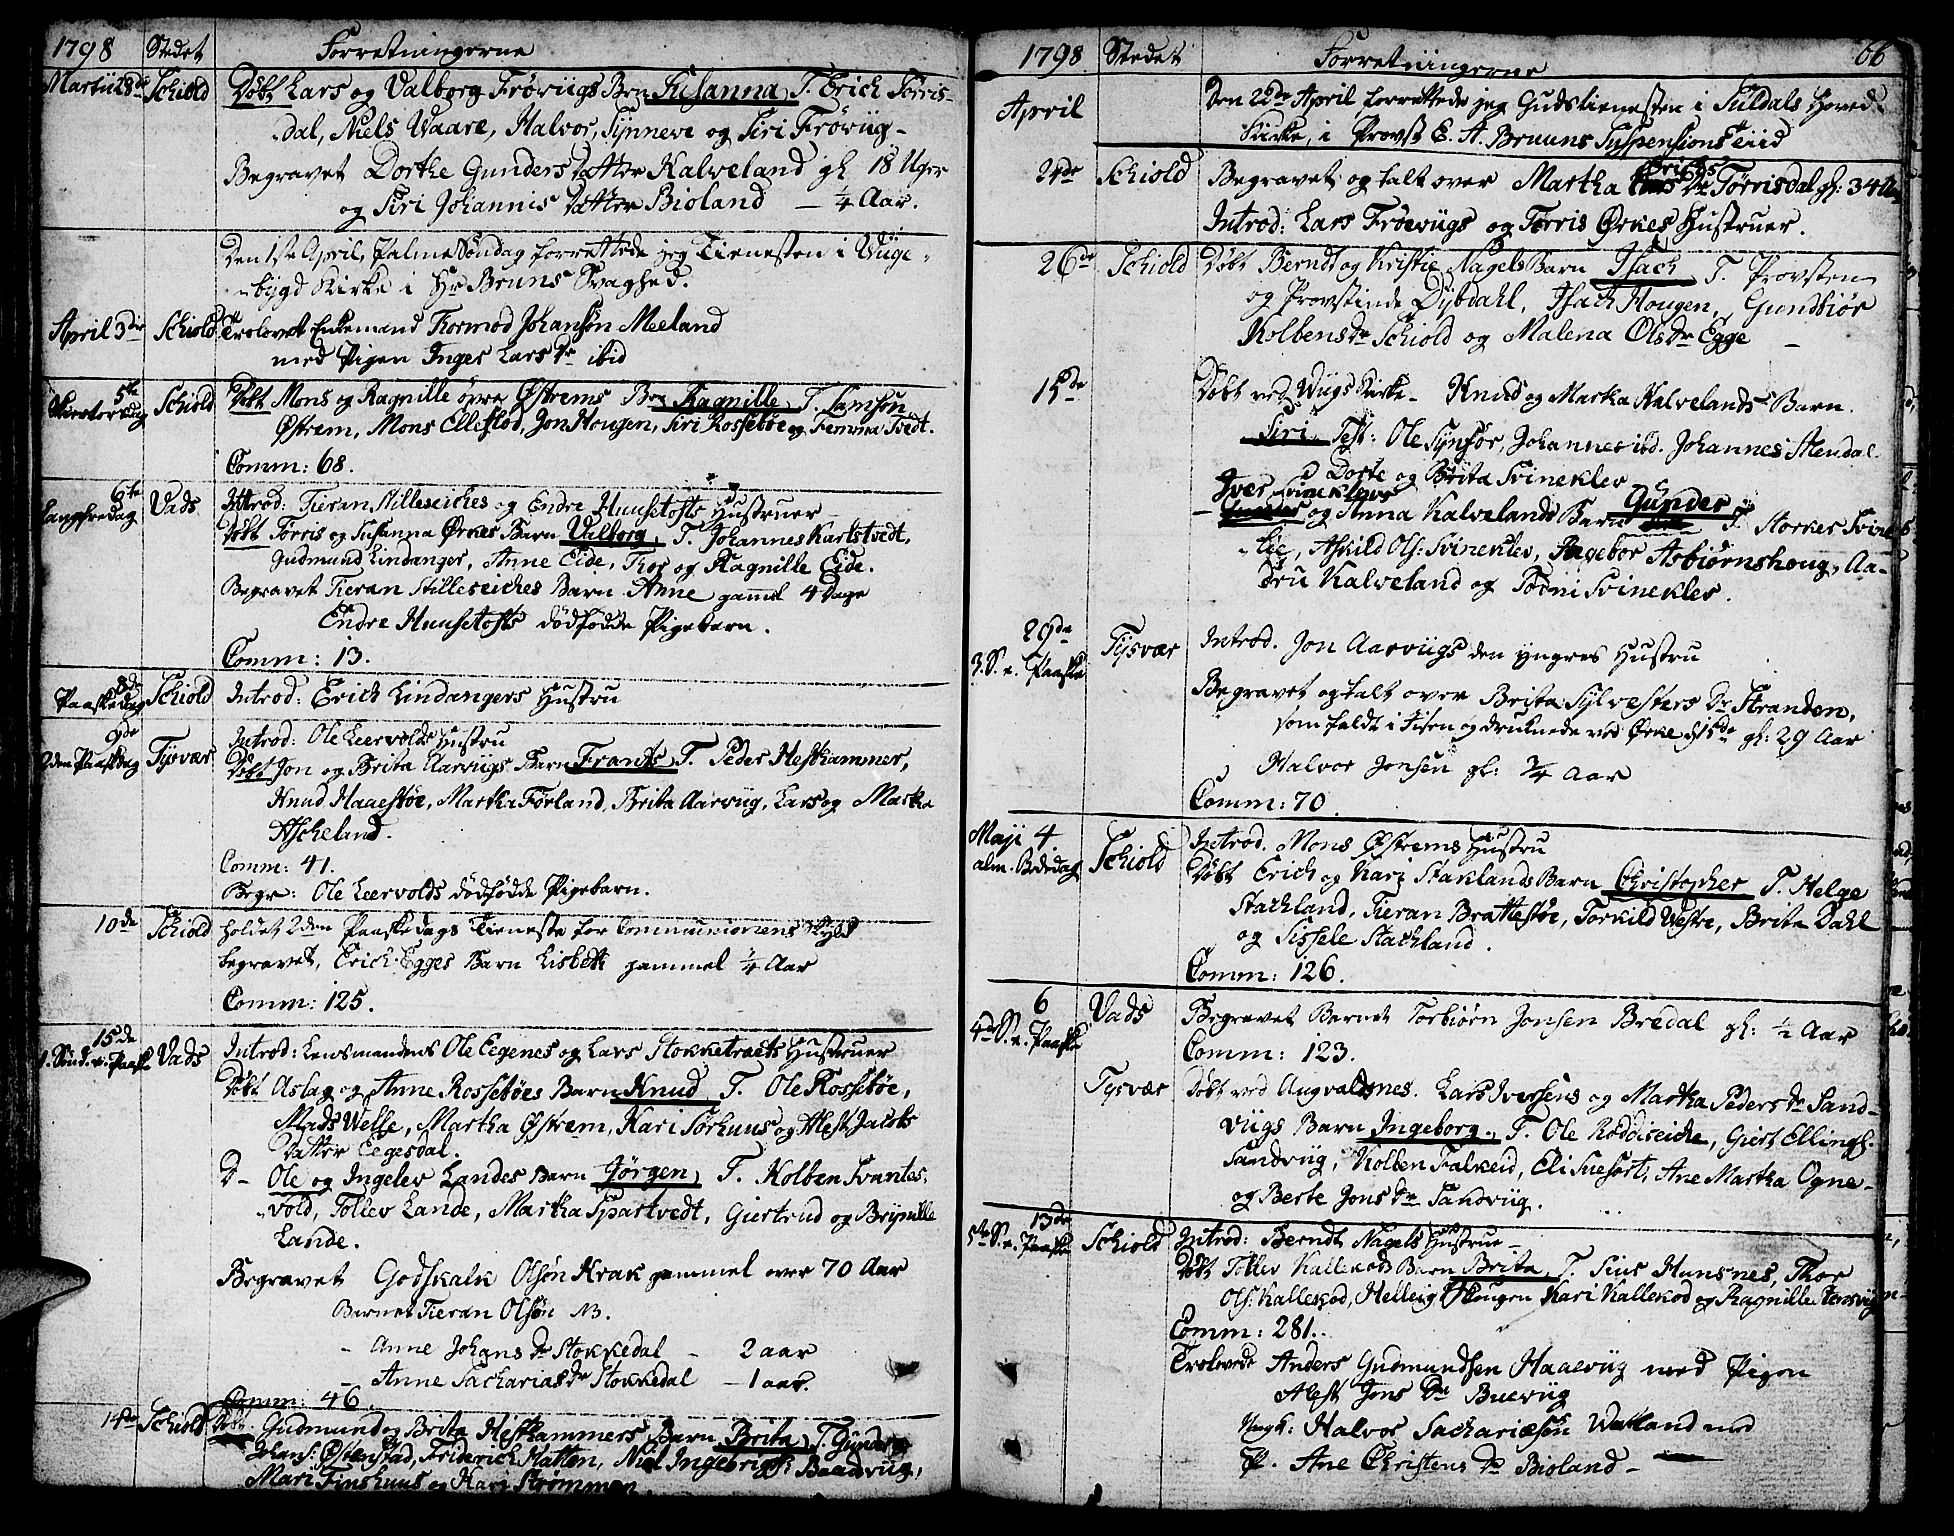 1798 Stedet Forretningerne
Martii 28de Schiold Døbt Lars og Valborg Frøviigs Brn Susanna, T. Erich Tørris-
dal, Niels Waare, Halvor, Synneve og Siri Frøviig-
Begravet Dorthe Gunders Datter Kalveland gl 18 Uger
og Siri Johannis Datter Bioland – ¼ Aar.
Den 1ste April, Palme Søndag forrettede jeg Tienesten i
bygd Kirke i Hr Bruns Svaghed.
April 3die Schiold Trolovet Enkemand Thormod Johansøn Meeland
med Pigen Inger Lars Dr ibid
5te
Skiertorsdag Schiold Døbt Mons og Ragnille øvre Østrems Brn Ragnille T. Samson
Østrem, Mons Ellestod, Jon Hougen, Siri Rossebøe og Femma Tvedt.
Comm: 68.
6te
Langfredag Vads Introd: Tieran Stilleseiches og Endre Huusetofts Hustruer
Døbt Torris og Susanna Ørkes Barn Valborg, T. Johannes Kartstvedt,
Gudmund Lindanger, Anne Eide, Thor og Ragnille Eide.
Begravet Tieran Stilleseiches Barn Anne gaml 4 Dage
Endre Huusetofts dødfødde Pigebarn.
Comm: 13.
8de
Paaskedag Schiold Introd: Erich Lindangers Hustru
9de Introd: Ole Leervolds Hustru
2den Paaskedag Tysvær Døbt Jon og Brita Aarvigs Barn Frants T. Peder Hestkammer,
Knud Haaestøe, Martha Førland, Brita Aarviig, Lars og Martha
Ascheland.
Comm: 41.
Begr: Ole Leervolds dødfødde Pigebarn.
10de Schiold holdet 2den Paaskedags Tieneste for Communionens Skyld
begravet, Erich Egges Barn Lisbeth gammel ¼ Aar
Comm: 125.
15de
1. Sønd. e. Paaske Vads Introd: Lensmandens Ole Eegenes og Lars Stokketraets Hustruer
Døbt Aslag og Anne Rossebøes Barn Knud T. Ole Rossebøe,
Mads Welle, Martha Østrem, Kari Sørhuus og Alest Jacobs
Datter Eegesdal.
D– Ole og Ingelev Landes Barn Jørgen, T. Kolben Svantes-
vold, Tollev Lande, Martha Spartvedt, Giertrud og Brynille
Lande.
Begravet Godskalk Olsøn Krak gammel over 70 Aar
Barnet Tieran Olsøn NB.
– Anne Johans Dr Stokkedal – 2 aar
– Anne Sacharias Dr Stokkedal – 1 aar.
Comm: 46.
14de Schiold Døbt Gudmund og Brita Hestkammers Barn Brita, T. Gunder
Johans: Østenstad, Friderich Hatten, Niel Ingebrigts: Baadviig,
Mari Finshuus og Kari Strømmen.
1798 Stedet Forretningerne 66
April Den 22de April forrettede jeg Gudstienesten i Suldals Hoved-
Kirke, i Provst E. A. Bruuns Suspensions Tiid
24de Schiold Begravet og talt over Martha Erichs Dr Tørrisdal gl: 34 Aar
Introd: Lars Frøeviigs og Tørris Ørkes Hustruer.
26de Schiold Døbt Berndt og Kristie Nagels Barn Isach T. Provsten
og Provstinde Dybdahl, Isach Hougen, Gundbiør
Kolbens Dr Schiold og Malena Ols Dr Egge –
15de Døbt ved Wiigs Kirke – Knud og Martha Kalvelands Barn.
Siri, Test: Ole Synsør, Johannes ibd. Johannes Stendal.
Dorte og Brita Svineklev
Iver Svineklevs
og Anna Kalvelands Barn Gunder T. Storker Svinek-
lie, Askild Ols: Svineklev, Ingebor Asbiørnshoug, Aa-
dru Kalveland og Tørni Svineklev.
29de
3. S. e. Paaske Tysvær Introd. Jon Aarviigs den yngres Hustru
Begravet og talt over Brita Sylvesters Dr Stranden,
som faldt i Søen og druknede ved Ørke d 15de gl: 29 Aar
Halvor Jonsen gl: ¾ Aar
Comm: 70.
Maji 4
alm. Bededag Schiold Introd. Mons Østrems Hustru
Døbt Erich og Kari Staklands Barn Christopher T. Helge
Stachland, Tieran Brattestøe, Torkild Westre, Brita Dahl
og Sissele Stachland.
Comm: 126.
6
4de S. e. Paaske Vads Begravet Barnet Torbiørn Jonsen Bredal gl: ½ Aar
Comm: 123.
Tysvær Døbt ved Augvaldsnes. Lars Iversens og Martha Peders Dr Sand-
viigs Barn Ingeborg, T. Ole Røddseiche, Giert Ellings:
Sandviig, Kolben Falkeid, Eli Suesort, Ane Martha Ogne-
og Berte Jons Dr Sandviig.
13de
5te S. e. Paaske Schiold Introd: Berndt Nagels Hustrue –
Døbt Tollev Kallekods Barn Brita, T. Siur Hunsnes, Thor
Ols: Kallekod, Helleig Hougen Kari Kallekod og Ragnille Stensviig
Comm: 281.
Trolovede Anders Gudmundsen Haalviig med Pigen
Alest Jons Dr Bueviig
Ungk: Halvor Sachariæsøn Watland med
P. Ane Christens Dr Bioland –